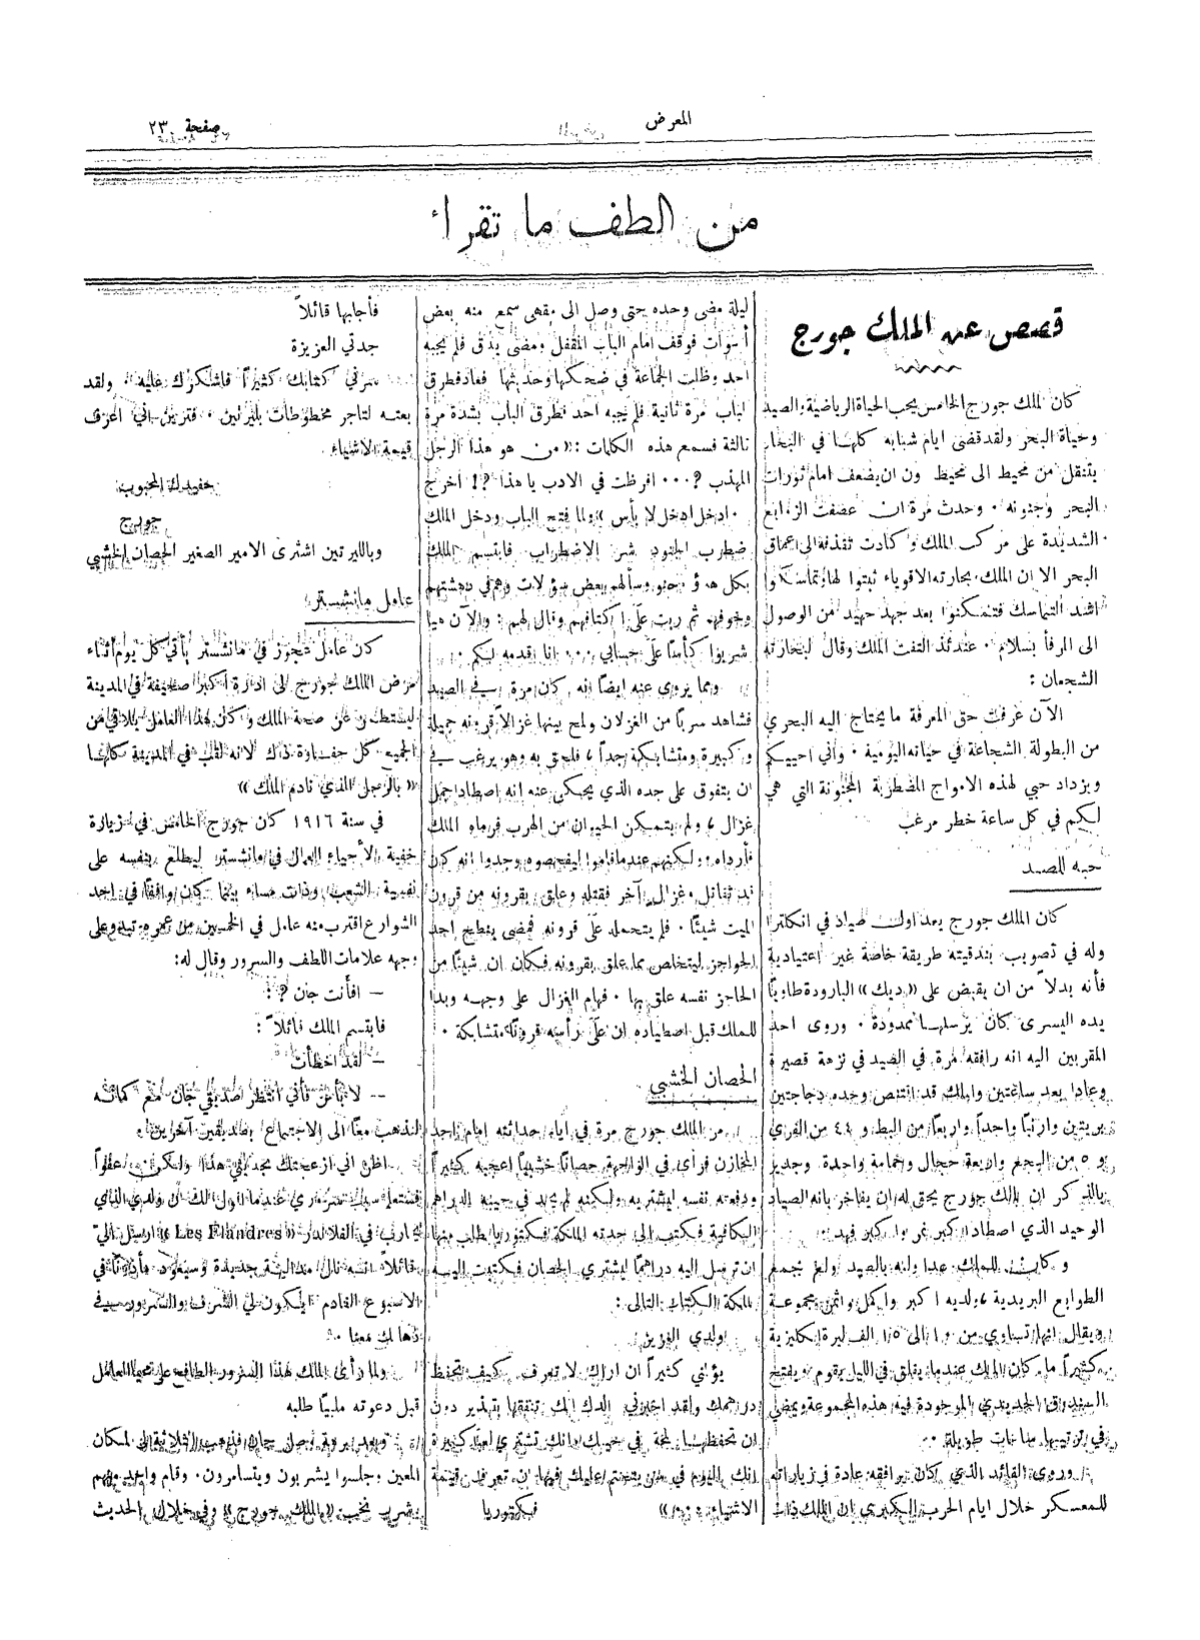 المعرض
صفحة ٢٣
من الطف ما تقرأ
قصص عن الملك جورج
كان الملك جورج الخامس يحب الحياة الرياضية والصيد
وحياة البحر ولقد قضى ايام شبابه كلها في البحار
يتنقل من محيط الى محيط دون ان يضعف امام ثورات
البحر وجنونه ٠ وحدث مرة ان عصفت الزوابع
الشديدة على مركب الملك وكادت تقذفه الى اعماق
البحر الا ان الملك بحارته الاقوياء ثبتوا لها وتماسكوا
اشد التماسك فتمكنوا بعد جهد جهيد من الوصول
الى المرفأ بسلام ٠ عندئذ التفت الملك وقال لبحارته
الشجعان :
الآن عرفت حق المعرفة ما يحتاج اليه البحري
من البطولة الشجاعة في حياته اليومية ٠ واني احييكم
ويزداد حبي لهذه الامواج المضطربة المجنونة التي هي
لكم في كل ساعة خطر مرعب
حبه للصيد
كان الملك جورج يعد اول صياد في انكلترا
وله في تصويب بندقيته طريقة خاصة غير اعتيادية
فأنه بدلاً من ان يقبض على «ديك» البارودة طاويًا
يده اليسرى كان يرسلها ممدودة ٠ وروى احد
المقربين اليه انه رافقه مرة في الصيد في نزهة قصيرة
وعادا بعد ساعتين والملك قد اقتنص وحده دجاجتين
بريتين وارنبًا واحداً واربعاً من البط و ٤٨ من القرى
و ٥ من البجع واربعة حجال وحمامة واحدة ٠ وجدير
بالذكر ان الملك جورج يحق له ان يفاخر بانه الصياد
الوحيد الذي اصطاد اكبر نمر واكبر فهد
وكان للملك عدا ولعه بالصيد ولع بجمع
الطوابع البريدية ولديه اكبر واكمل واثمن مجموعة
ويقال انها تساوي من الى الف ليرة انكليزية
كثيراً ما كان الملك عندما يقلق في الليل يقوم ويفتح
الصندوق الحديدي الموجودة فيه هذه المجموعة ويمضي
في ترتيبها ساعات طويلة ٠
وروى القائد الذي كان يرافقه عادة في زياراته
للمعسكر خلال ايام الحرب الكبرى ان الملك ذات
ليلة مضى وحده حتى وصل الى مقهى سمع منه بعض
أصوات فوقف امام الباب المقفل ومضى يدق فلم يجبه
احد وظلت الجماعة في ضحكها وحديثها فعاد فطرق
الباب مرة ثانية فلم يجبه احد فطرق الباب بشدة مرة
ثالثة فسمع هذه الكلمات : «من هو هذا الرجل
المهذب ?٠٠٠ افرظت في الادب يا هذا ?! اخرج
٠ ادخل ادخل لا بأس » ولما فتح الباب ودخل الملك
ضطرب الجنود شر الاضطراب فابتسم الملك
بكل هدؤ وحنو وسألهم بعض سؤلات وهم في دهشتهم
وخوفهم ثم ربت على اكتافهم وقال لهم : والآن هيا
شربوا كأسًا على حسابي ٠٠٠ انا اقدمه لكم ٠
ومما يروى عنه ايضًا انه كان مرة في الصيد
فشاهد سربًا من الغزلان ولمح بينها غزالاً قرونه جميلة
وكبيرة ومتشابكة جداً ، فلحق به وهو يرغب في
ان يتفوق على جده الذي يحكى عنه انه اصطاد اجمل
غزال ، ولم يتمكن الحيوان من الهرب فرماه الملك
فأرداه ، ولكنهم عندما قاموا ليفحصوه وجدوا انه كان
قد تقاتل وغزال آخر فقتله وعلق بقرونه من قرون
الميت شيئًا ٠ فلم يتحمله على قرونه فمضى ينطح احد
الحواجز ليتخلص مما علق بقرونه فكان ان شيئًا من
الحاجز نفسه علق بها ٠ فهام الغزال على وجهه وبدا
للملك قبل اصطياده ان على رأسه قرونًا متشابكة ٠
الحصان الخشبي
مر الملك جورج مرة في ايام حداثته امام احد
المخازن فرأى في الواجهة حصانًا خشبيًا اعجبه كثيراً
ودفعته نفسه ليشتريه ولكنه لم يجد في جيبه الدراهم
الكافية فكتب الى جدته الملكة فكتوريا يطلب منها
ان ترسل اليه دراهمًا ليشتري الحصان فكتبت اليه
الملكة الكتاب التالي :
ولدي العزيز
يؤلمني كثيراً ان اراك لا تعرف كيف تحفظ
دراهمك ولقد اخبرني انك تنفقها بتبذير دون
ان تحفظها في جيبك وانك تشتري لعبًا كثيرة
انك اليوم في سن يتحتم عليك فيها ان تعرف قيمة
الاشياء »
فيكتوريا
فأجابها قائلاً
جدتي العزيزة
سرني كتابك كثيراً فاشكرك عليه ولقد
بعته لتاجر مخطوطات بليرتين ٠ فترين اني اعرف
قيمة الاشياء
حفيدك المحبوب
جورج
وبالليرتين اشترى الامير الصغير الحصان الخشبي
عامل مانشستر
كان عامل عجوز في مانشستر يأتي كل يوم اثناء
مرض الملك جورج الى ادارة اكبر صحيفة في المدينة
ليستطلع عن صحة الملك وكان هذا العامل يلاقي من
الجميع كل حفاوة ذلك لانه لقب في المدينة كلها
« بالرجل الذي نادم الملك»
في سنة ١٩١٦ كان جورج الخامس في زيارة
خفية لأحياء العمال في مانشستر ليطلع بنفسه على
نفسية الشعب وذات مساء بينما كان واقفًا في احد
الشوارع اقترب منه عامل في الخمسين من عمره تبدو على
وجهه علامات اللطف والسرور وقال له:
— افأنت جان ?!
فابتسم الملك قائلاً :
— لقد اخطأت
— لا بأس فأني انتظر صديقي جان
لنذهب معًا الى الاجتماع بصديقين آخرين ٠
اظن اني ازعجتك بحديثي هذا ولكن عفواً
عندما اقول لك ان ولدي الذي
يحارب في الفلاندر «Les Flandres» ارسل الي
قائلاً انه نال مدالية جديدة وسيعود مأذونًا في
الاسبوع القادم ايكون لي الشرف والسرور في
ذهابك معنا ٠
ولما رأى الملك هذا السرور الطافح على محيا العامل
قبل دعوته ملبيًا طلبه
وبعد برهة وصل جان فذهب الثلاثة الى المكان
المعين وجلسوا يشربون ويتسامرون ٠ وقام واحد منهم
يشرب نخب «الملك جورج» وفي خلال الحديث